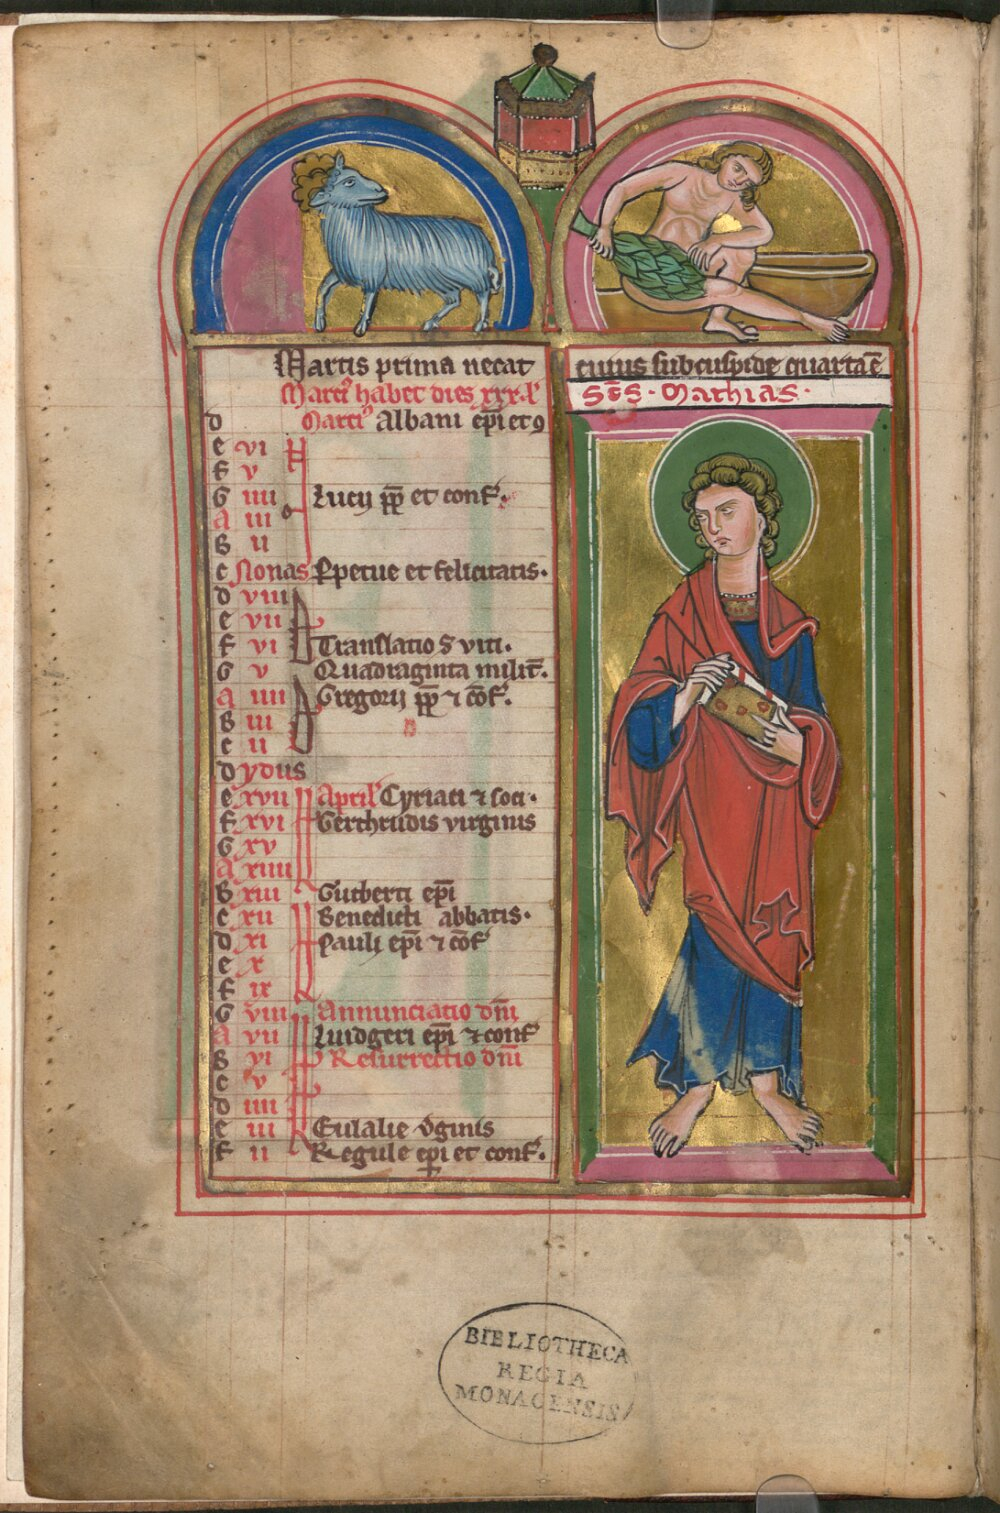 Martis prima necat cuius sub cuspide quarta ē
Marci⁹ habet dies xxx.i
Sc̄s · Mathias ·
d Marci⁹ Albani ep̄i et 9
e vi
f v
G iiii Lucii pp̄ et conf̄.
A iii
B ii
c Nonas P̱petue et felicitatis.
d viii
e vii
f vi Translatio S viti.
G v Quadraginta milit̄.
A iiii Gregorij pp̄ ⁊ cōf.
B iii
c ii
d ydus
e xvii April̄ Cyriaci ⁊ soci.
f xvi Gerthrudis virginis
G xv
A xiiii
B xiii Gutberti ep̄i
c xii Benedicti abbatis.
d xi Pauli ep̄i ⁊ cōf
e x
f ix
G viii Annunciatio dn̄i
A vii Luidgeri ep̄i ⁊ conf
B vi Resurrectio dn̄i
c v
d iiii
e iii Eulalie v̄ginis
f ii Regule ep̄i et conf̄.
BIBLIOTHECA
REGIA
MONACENSIS